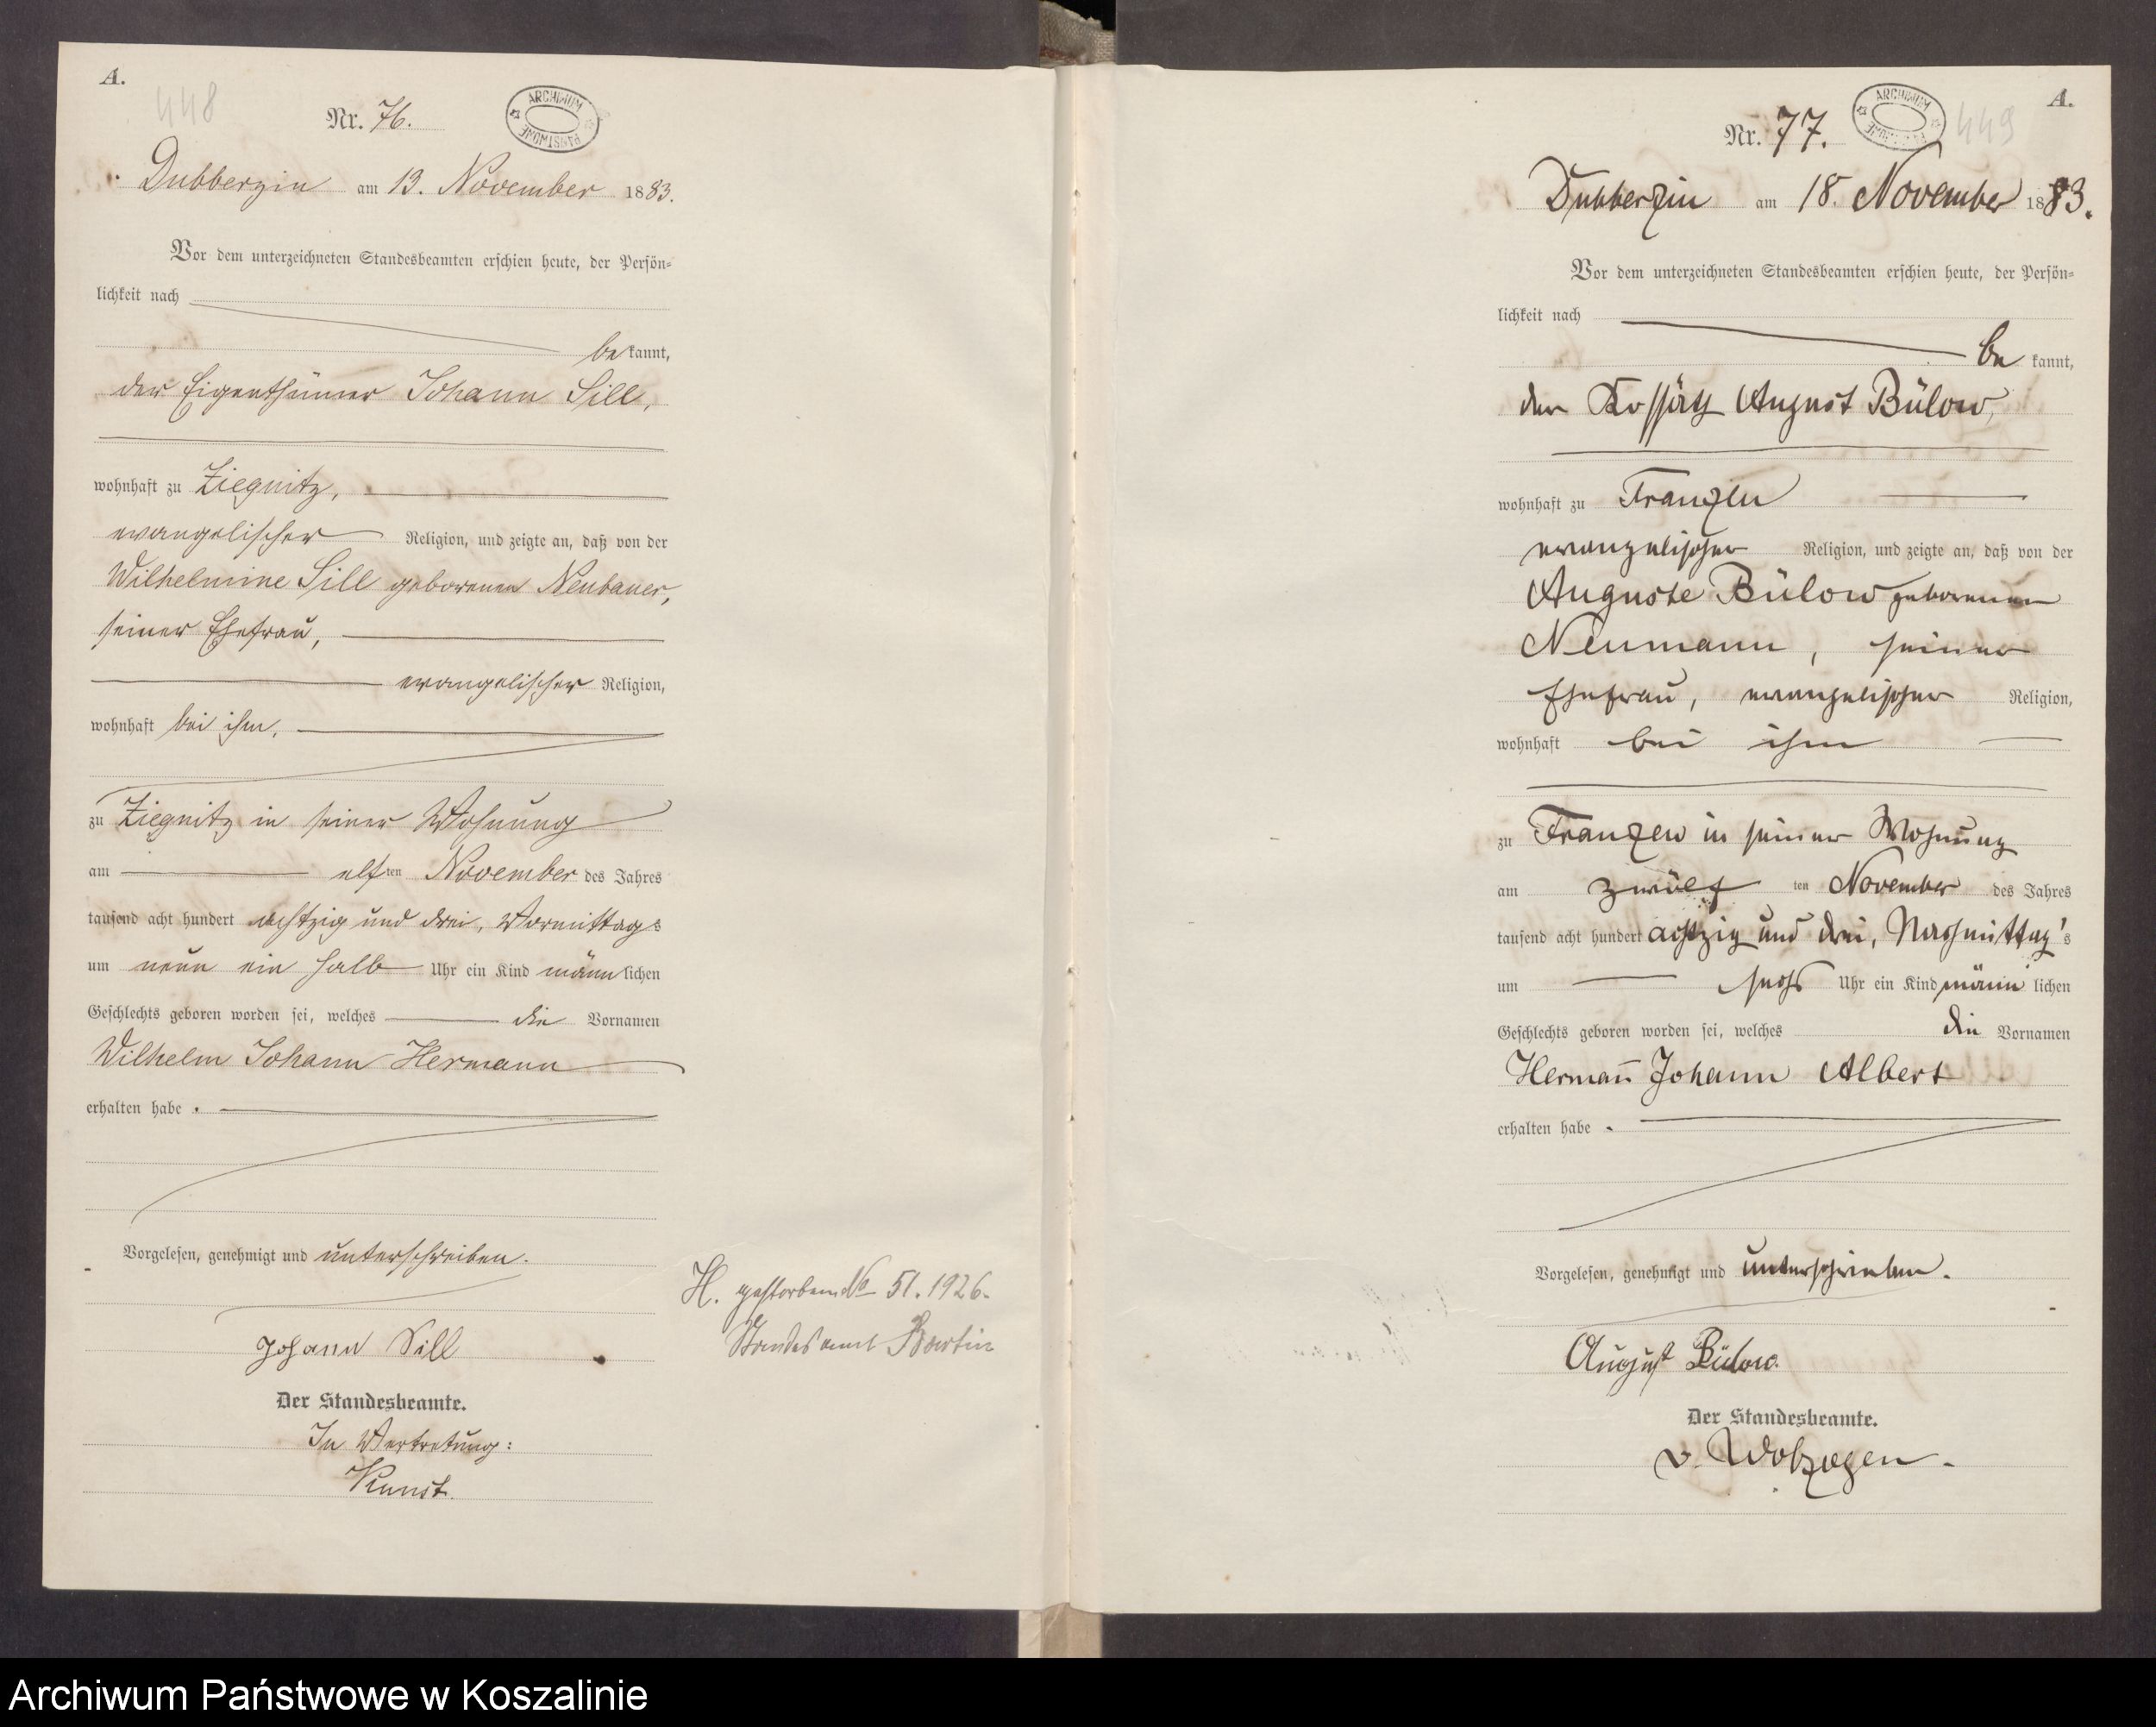 A.
448
Nr. 76.
ARCHIWUM PAŃSTWOWE
Dubberzin am 13. November 1883.
Vor dem unterzeichneten Standesbeamten erschien heute, der Persön=
lichkeit nach
bekannt,
der Eigenthümer Johann Sill,
wohnhaft zu Ziegnitz,
evangelischer Religion, und zeigte an, daß von der
Wilhelmine Sill geborenen Neubauer,
seiner Ehefrau,
evangelischer Religion,
wohnhaft bei ihm,
zu Ziegnitz in seiner Wohnung
am elften November des Jahres
tausend acht hundert achtzig und drei, Vormittags
um neun ein halb Uhr ein Kind männlichen
Geschlechts geboren worden sei, welches die Vornamen
Wilhelm Johann Hermann
erhalten habe.
Vorgelesen, genehmigt und unterschrieben.
Johann Sill
Der Standesbeamte.
In Vertretung:
Kunst.
H. gestorben No 51. 1926.
Standesamt Bartin
A.
449
Nr. 77.
ARCHIWUM
Dubberzin am 18. November 1883.
Vor dem unterzeichneten Standesbeamten erschien heute, der Persön=
lichkeit nach
be kannt,
der Kossäth August Bülow,
wohnhaft zu Franzen
evangelischer Religion, und zeigte an, daß von der
Auguste Bülow geborenen
Neumann, seiner
Ehefrau, evangelischer Religion,
wohnhaft bei ihm
zu Franzen in seiner Wohnung
am zwölf ten November des Jahres
tausend acht hundert achtzig und drei, Nachmittag's
um sechs Uhr ein Kind männ lichen
Geschlechts geboren worden sei, welches die Vornamen
Herman̄ Johann Albert
erhalten habe.
Vorgelesen, genehmigt und unterschrieben.
August Bülow.
Der Standesbeamte.
v. Wolzogen.
Archiwum Państwowe w Koszalinie